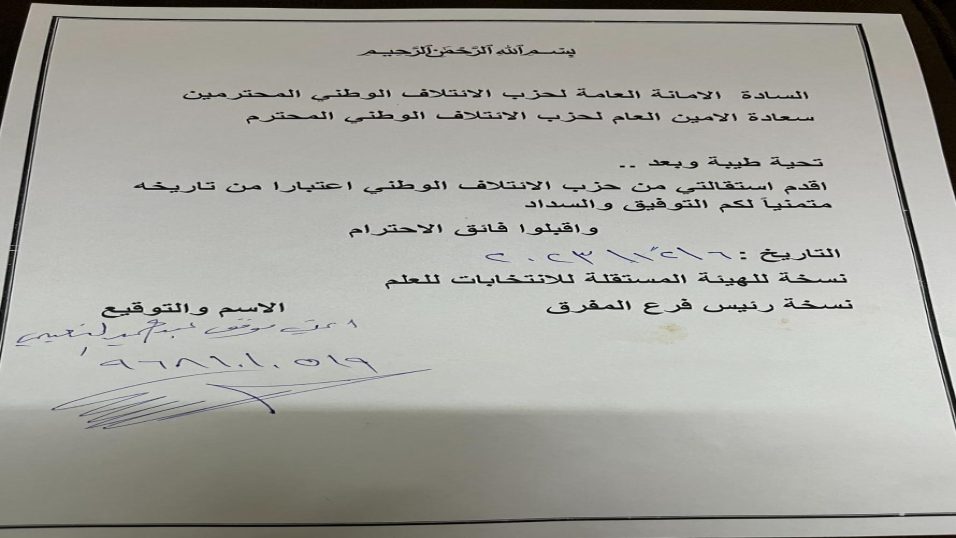 بسم الله الرحمن الرحيم
السادة الامانة العامة لحزب الائتلاف الوطني المحترمين
سعادة الامين العام لحزب الائتلاف الوطني المحترم
تحية طيبة وبعد ..
اقدم استقالتي من حزب الائتلاف الوطني اعتبارا من تاريخه
متمنياً لكم التوفيق والسداد
واقبلوا فائق الاحترام
التاريخ :
نسخة للهيئة المستقلة للانتخابات للعلم
نسخة رئيس فرع المفرق
الاسم والتوقيع
موفق